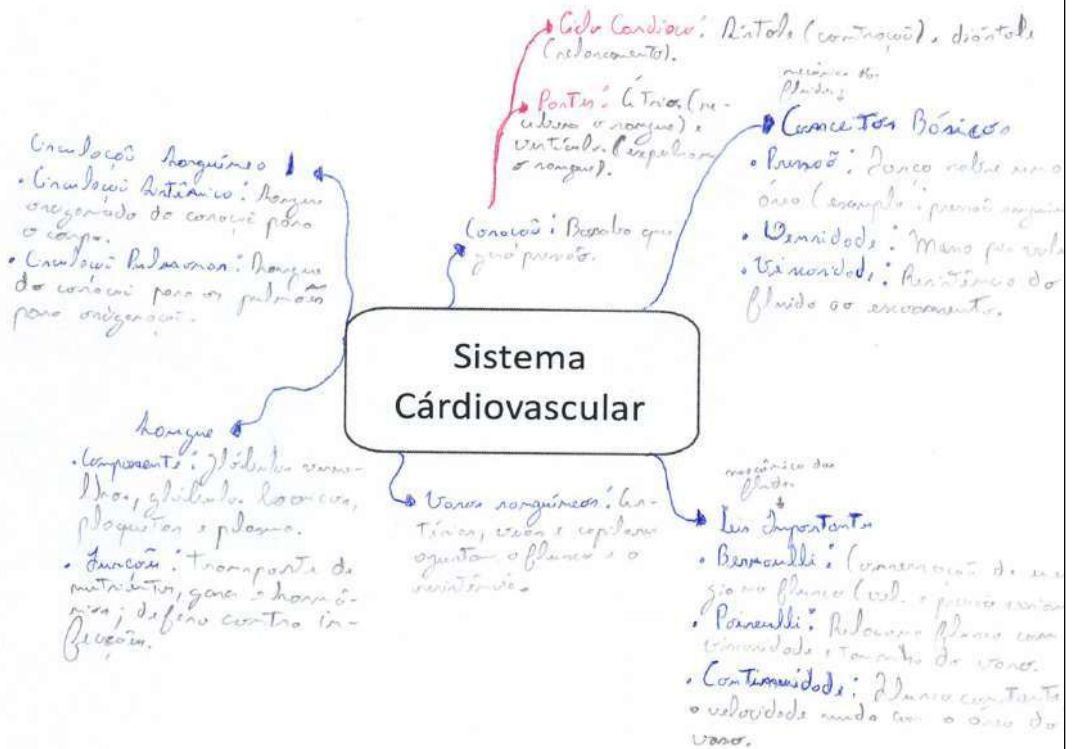 Ciclo Cardíaco: Sístole (contração), diástole
(relaxamento).
Partes: Átrios (re-
cebem o sangue) e
ventículos (expulsam
o sangue).
Coração: Bomba que
gera pressão.
mecânica dos
fluidos
Conceitos Básicos
• Pressão: Força sobre uma
área (exemplo: pressão
• Densidade: Massa por
• Viscosidade: Resistência do
fluido ao escoamento.
Circulação Sanguínea
• Circulação Sistêmica: Sangue
oxigenado do coração para
o corpo.
• Circulação Pulmonar: Sangue
do coração para os pulmões
para oxigenação.
Sistema
Cárdiovascular
Sangue
• Componente: Glóbulos verme-
lhos, glóbulos brancos,
plaquetas e plasma.
• Função: Transporte de
nutrientes, gases e hormô-
nios; defesa contra in-
fecções.
Vasos sanguíneos: Ar-
térias, veias e capilares
ajustam o fluxo e a
resistência.
mecânica dos
fluidos
Leis Importantes
• Bernoulli: Conservação de
no fluxo (vel. e pressão
• Poiseuilli: Relaciona fluxo com
viscosidade e tamanho do vaso.
• Continuidade: Fluxo constante
a velocidade muda com a área do
vaso.